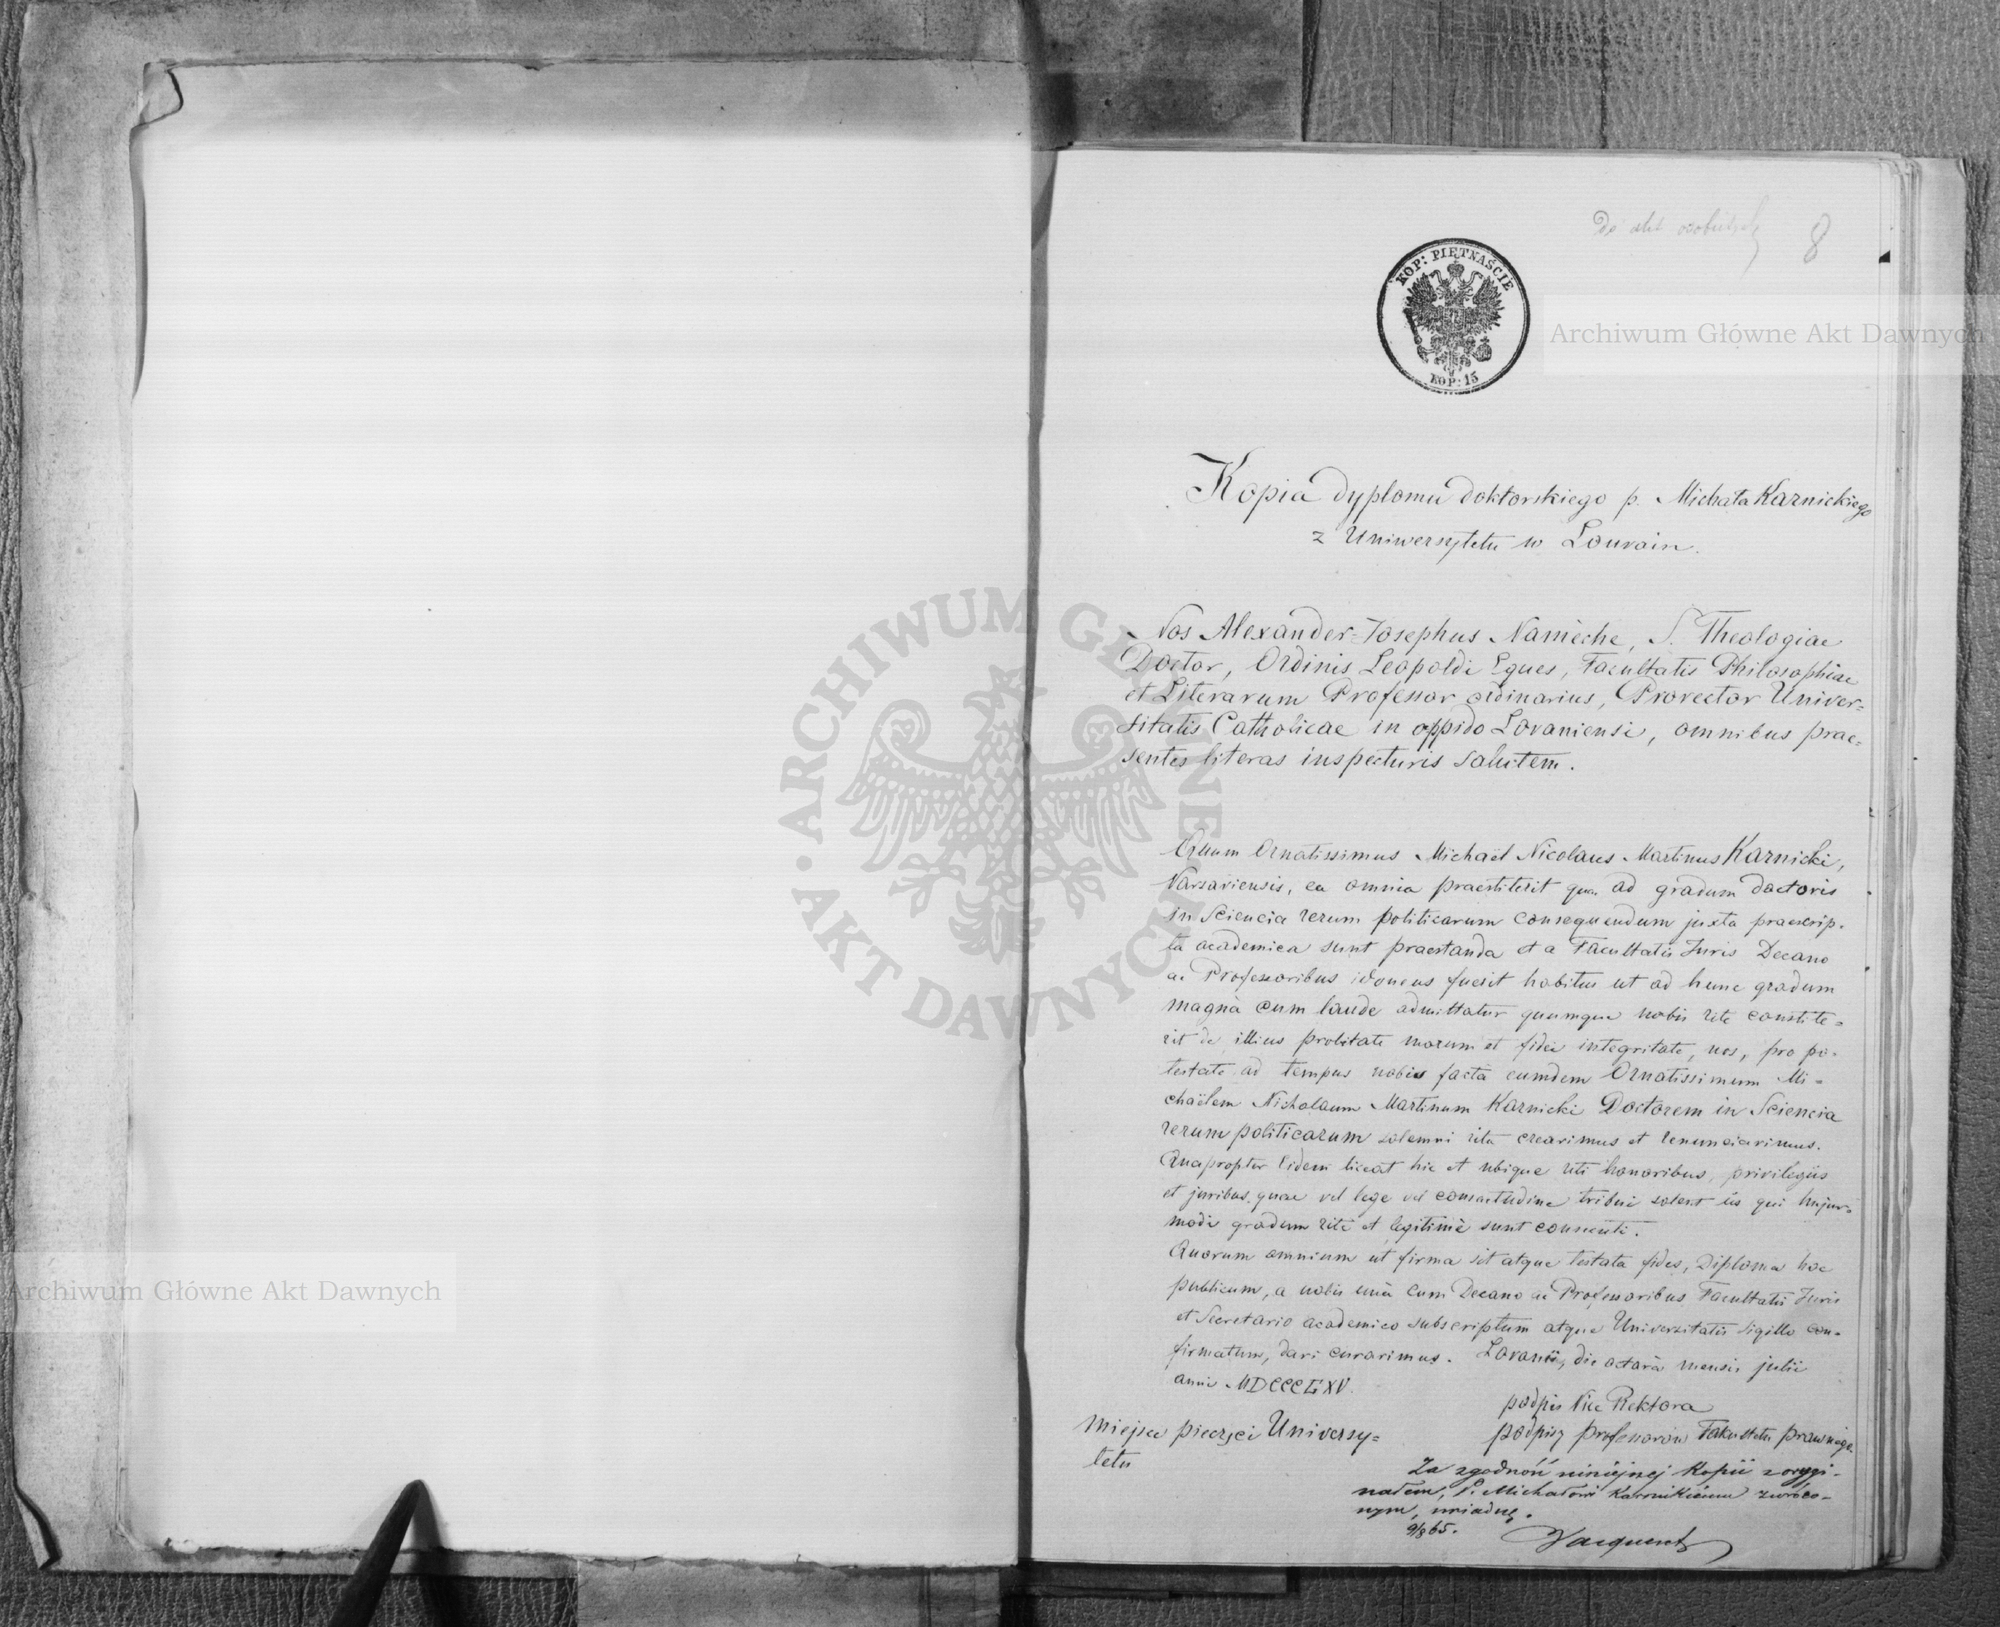 Do akt osobistych
8
KOP: PIĘTNAŚCIE
KOP: 15
Kopia dyplomu doktorskiego p. Michała Karnickiego
z Uniwersytetu w Louvain.
Nos Alexander-Josephus Namèche, S. Theologiae
Doctor, Ordinis Leopoldi Eques, Facultatis Philosophiae
et Literarum Professor ordinarius, Prorector Univer=
sitatis Catholicae in oppido Lovaniensi, omnibus prae=
sentes literas inspecturis salutem.
Quum Ornatissimus Michaël Nicolaus Martinus Karnicki,
Varsaviensis, ea omnia praestiterit quae ad gradum doctoris
in Sciencia rerum politicarum consequendum juxta praescrip-
ta academica sunt praestanda et a Facultatis Juris Decano
ac Professoribus idoneus fuerit habitus ut ad hunc gradum
magnâ cum laude admittatur quumque nobis rite constite=
rit de illius probitate morum et fidei integritate, nos, pro po-
testate ad tempus nobis factâ eumdem Ornatissimum Mi=
chaëlem Nicholaum Martinum Karnicki Doctorem in Sciencia
rerum politicarum solemni ritu creavimus et renunciavimus.
Quapropter eidem liceat hic et ubique uti honoribus, privilegiis
et juribus quae vel lege vel consuetudine tribui solent iis qui hujus=
modi gradum rite et legitimè sunt consecuti.
Quorum omnium ut firma sit atque testata fides, Diploma hoc
publicum, a nobis unâ cum Decano ac Professoribus Facultatis Juris
et Secretario academico subscriptum atque Universitatis sigillo con-
firmatum, dari curavimus. Lovanii, die octavâ mensis julii
anni MDCCCLXV.
podpis Vice Rektora
podpisy profesorów Fakultetu prawnego.
Miejsce pieczęci Uniwersy=
tetu
Za zgodność niniejszej Kopii z orygi-
nałem, P. Michałowi Karnickiemu zwróco-
nym, uriadnę.
9/8 65.
Archiwum Główne Akt Dawnych
Archiwum Główne Akt Dawnych
ARCHIWUM GŁÓWNE AKT DAWNYCH